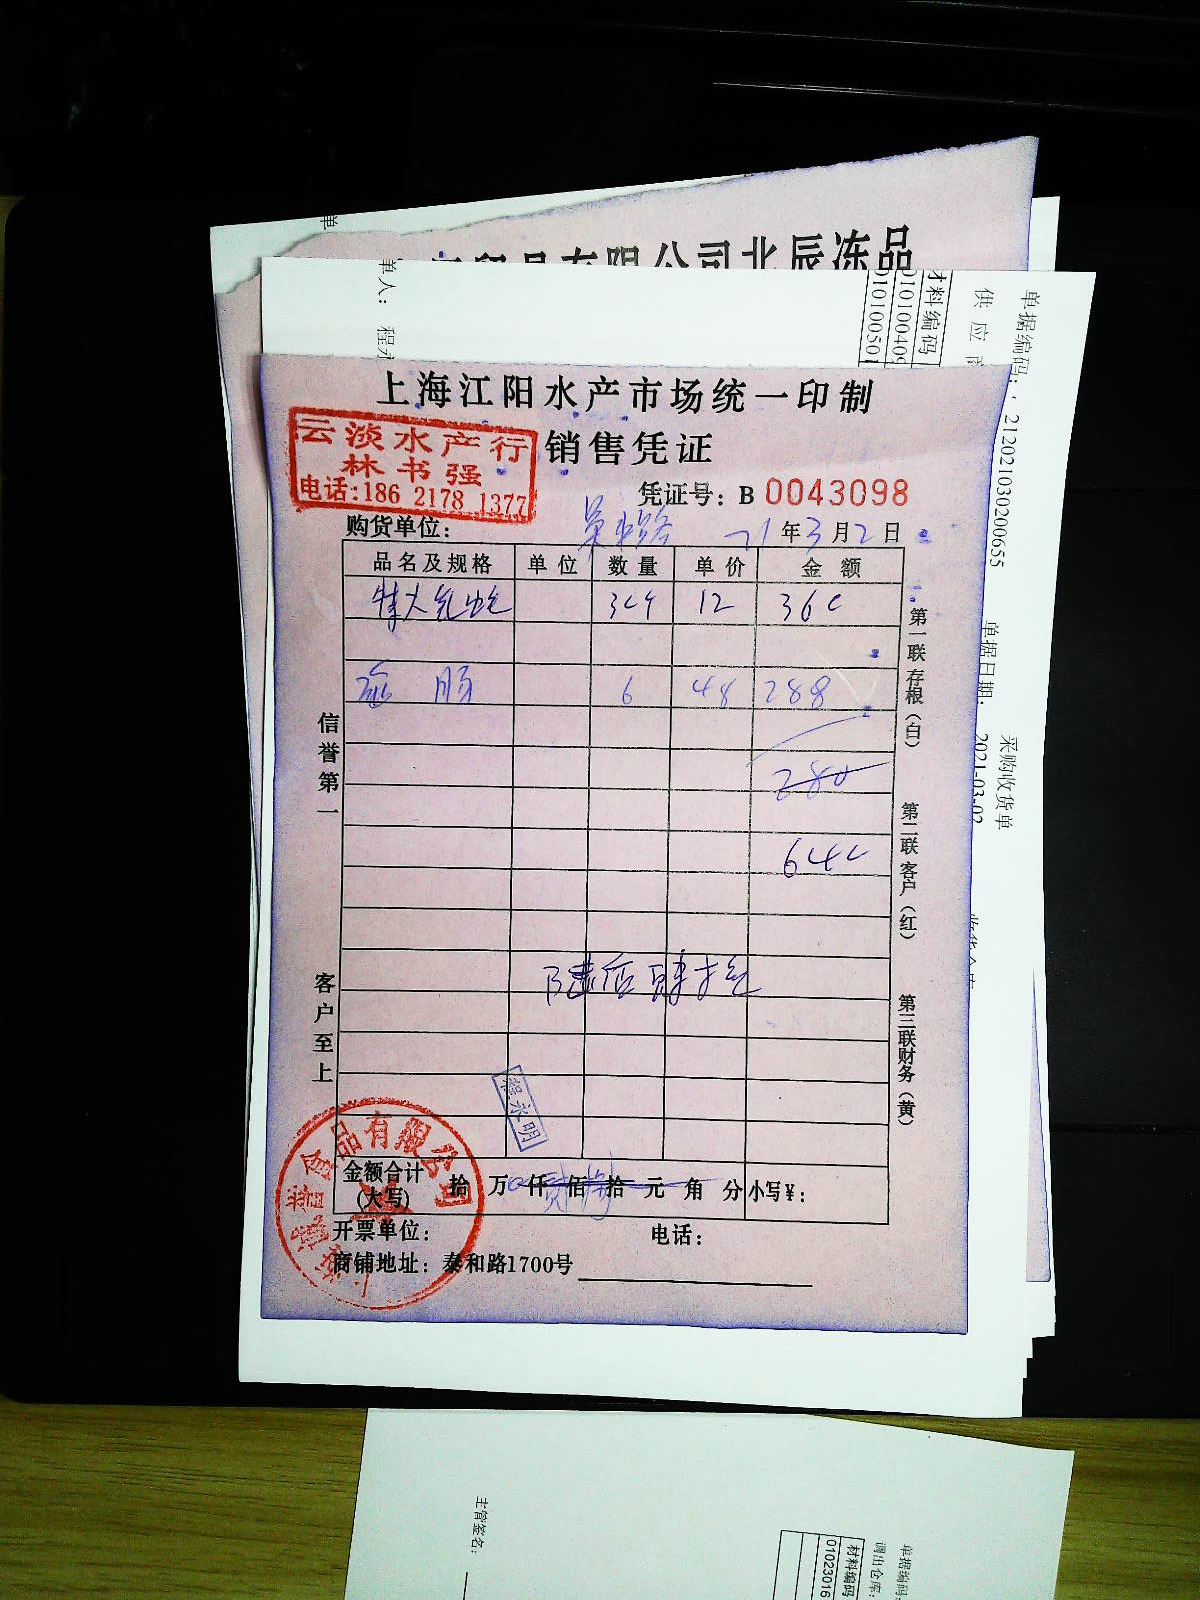 单
有限公司北辰冻品
单人：程永
材料编码
01010040
010100501
供应商
单据编码：212021030200655
单据日期：2021-03-02
采购收货单
上海江阳水产市场统一印制
云淡水产行
林书强
电话:186 2178 1377
销售凭证
凭证号：B 0043098
购货单位：
21年3月2日
品名及规格 单位 数量 单价 金额
特大 12 360
6 48 288
280
640
陆佰肆拾元
信誉第一
客户至上
第一联存根（白）
第二联客户（红）
第三联财务（黄）
程永明
食品有限公司
金额合计(大写) 拾 万 仟 佰 拾 元 角 分 小写¥：
开票单位： 电话：
商铺地址：泰和路1700号
主管签名：
单据编码：
调出仓库：
材料编码
01023016